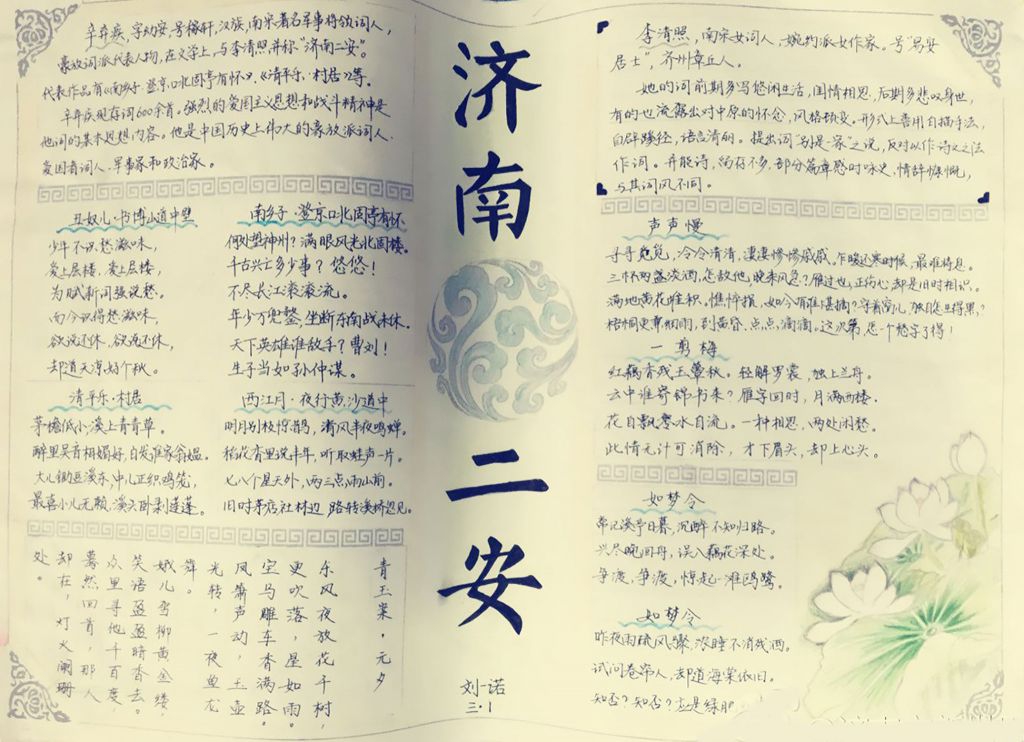 辛弃疾，字幼安，号稼轩，汉族，南宋著名军事将领词人，
豪放词派代表人物，在文学上，与李清照并称“济南二安”。
代表作品有《南乡子·登京口北固亭有怀》，《清平乐·村居》等。
辛弃疾现存词600余首。强烈的爱国主义思想和战斗精神是
他词的基本思想内容。他是中国历史上伟大的豪放派词人、
爱国者词人、军事家和政治家。
丑奴儿·书博山道中壁
少年不识愁滋味，
爱上层楼，爱上层楼，
为赋新词强说愁。
而今识得愁滋味，
欲说还休，欲说还休，
却道天凉好个秋。
南乡子·登京口北固亭有怀
何处望神州？满眼风光北固楼。
千古兴亡多少事？悠悠！
不尽长江滚滚流。
年少万兜鍪，坐断东南战未休。
天下英雄谁敌手？曹刘！
生子当如孙仲谋。
清平乐·村居
茅檐低小，溪上青青草。
醉里吴音相媚好，白发谁家翁媪。
大儿锄豆溪东，中儿正织鸡笼，
最喜小儿无赖，溪头卧剥莲蓬。
西江月·夜行黄沙道中
明月别枝惊鹊，清风半夜鸣蝉。
稻花香里说丰年，听取蛙声一片。
七八个星天外，两三点雨山前。
旧时茅店社林边，路转溪桥忽见。
青玉案·元夕
东风夜放花千树，
更吹落，星如雨。
宝马雕车，香满路。
凤箫声动，玉壶
光转，一夜鱼龙
舞。
蛾儿雪柳黄金缕，
笑语盈盈暗香去。
众里寻他千百度，
蓦然回首，那人
却在，灯火阑珊
处。
济南二安
刘一诺
三·1
李清照，南宋女词人，婉约派女作家。号“易安
居士”，济州章丘人。
她的词前期多写悠闲生活，闺情相思，后期多悲叹身世，
有的也流露出对中原的怀念，风格顿变。形式上善用白描手法，
自辟蹊径，语言清丽。提出词“别是一家”之说，反对以作诗文之法
作词。并能诗，留存不多，部分篇章感时咏史，情辞慷慨，
与其词风不同。
声声慢
寻寻觅觅，冷冷清清，凄凄惨惨戚戚。乍暖还寒时候，最难将息。
三杯两盏淡酒，怎敌他，晚来风急？雁过也，正伤心，却是旧时相识。
满地黄花堆积。憔悴损，如今有谁堪摘？守着窗儿，独自怎生得黑？
梧桐更兼细雨，到黄昏，点点滴滴。这次第，怎一个愁字了得！
一剪梅
红藕香残玉簟秋。轻解罗裳，独上兰舟。
云中谁寄锦书来？雁字回时，月满西楼。
花自飘零水自流。一种相思，两处闲愁。
此情无计可消除，才下眉头，却上心头。
如梦令
常记溪亭日暮，沉醉不知归路。
兴尽晚回舟，误入藕花深处。
争渡，争渡，惊起一滩鸥鹭。
如梦令
昨夜雨疏风骤，浓睡不消残酒。
试问卷帘人，却道海棠依旧。
知否？知否？应是绿肥